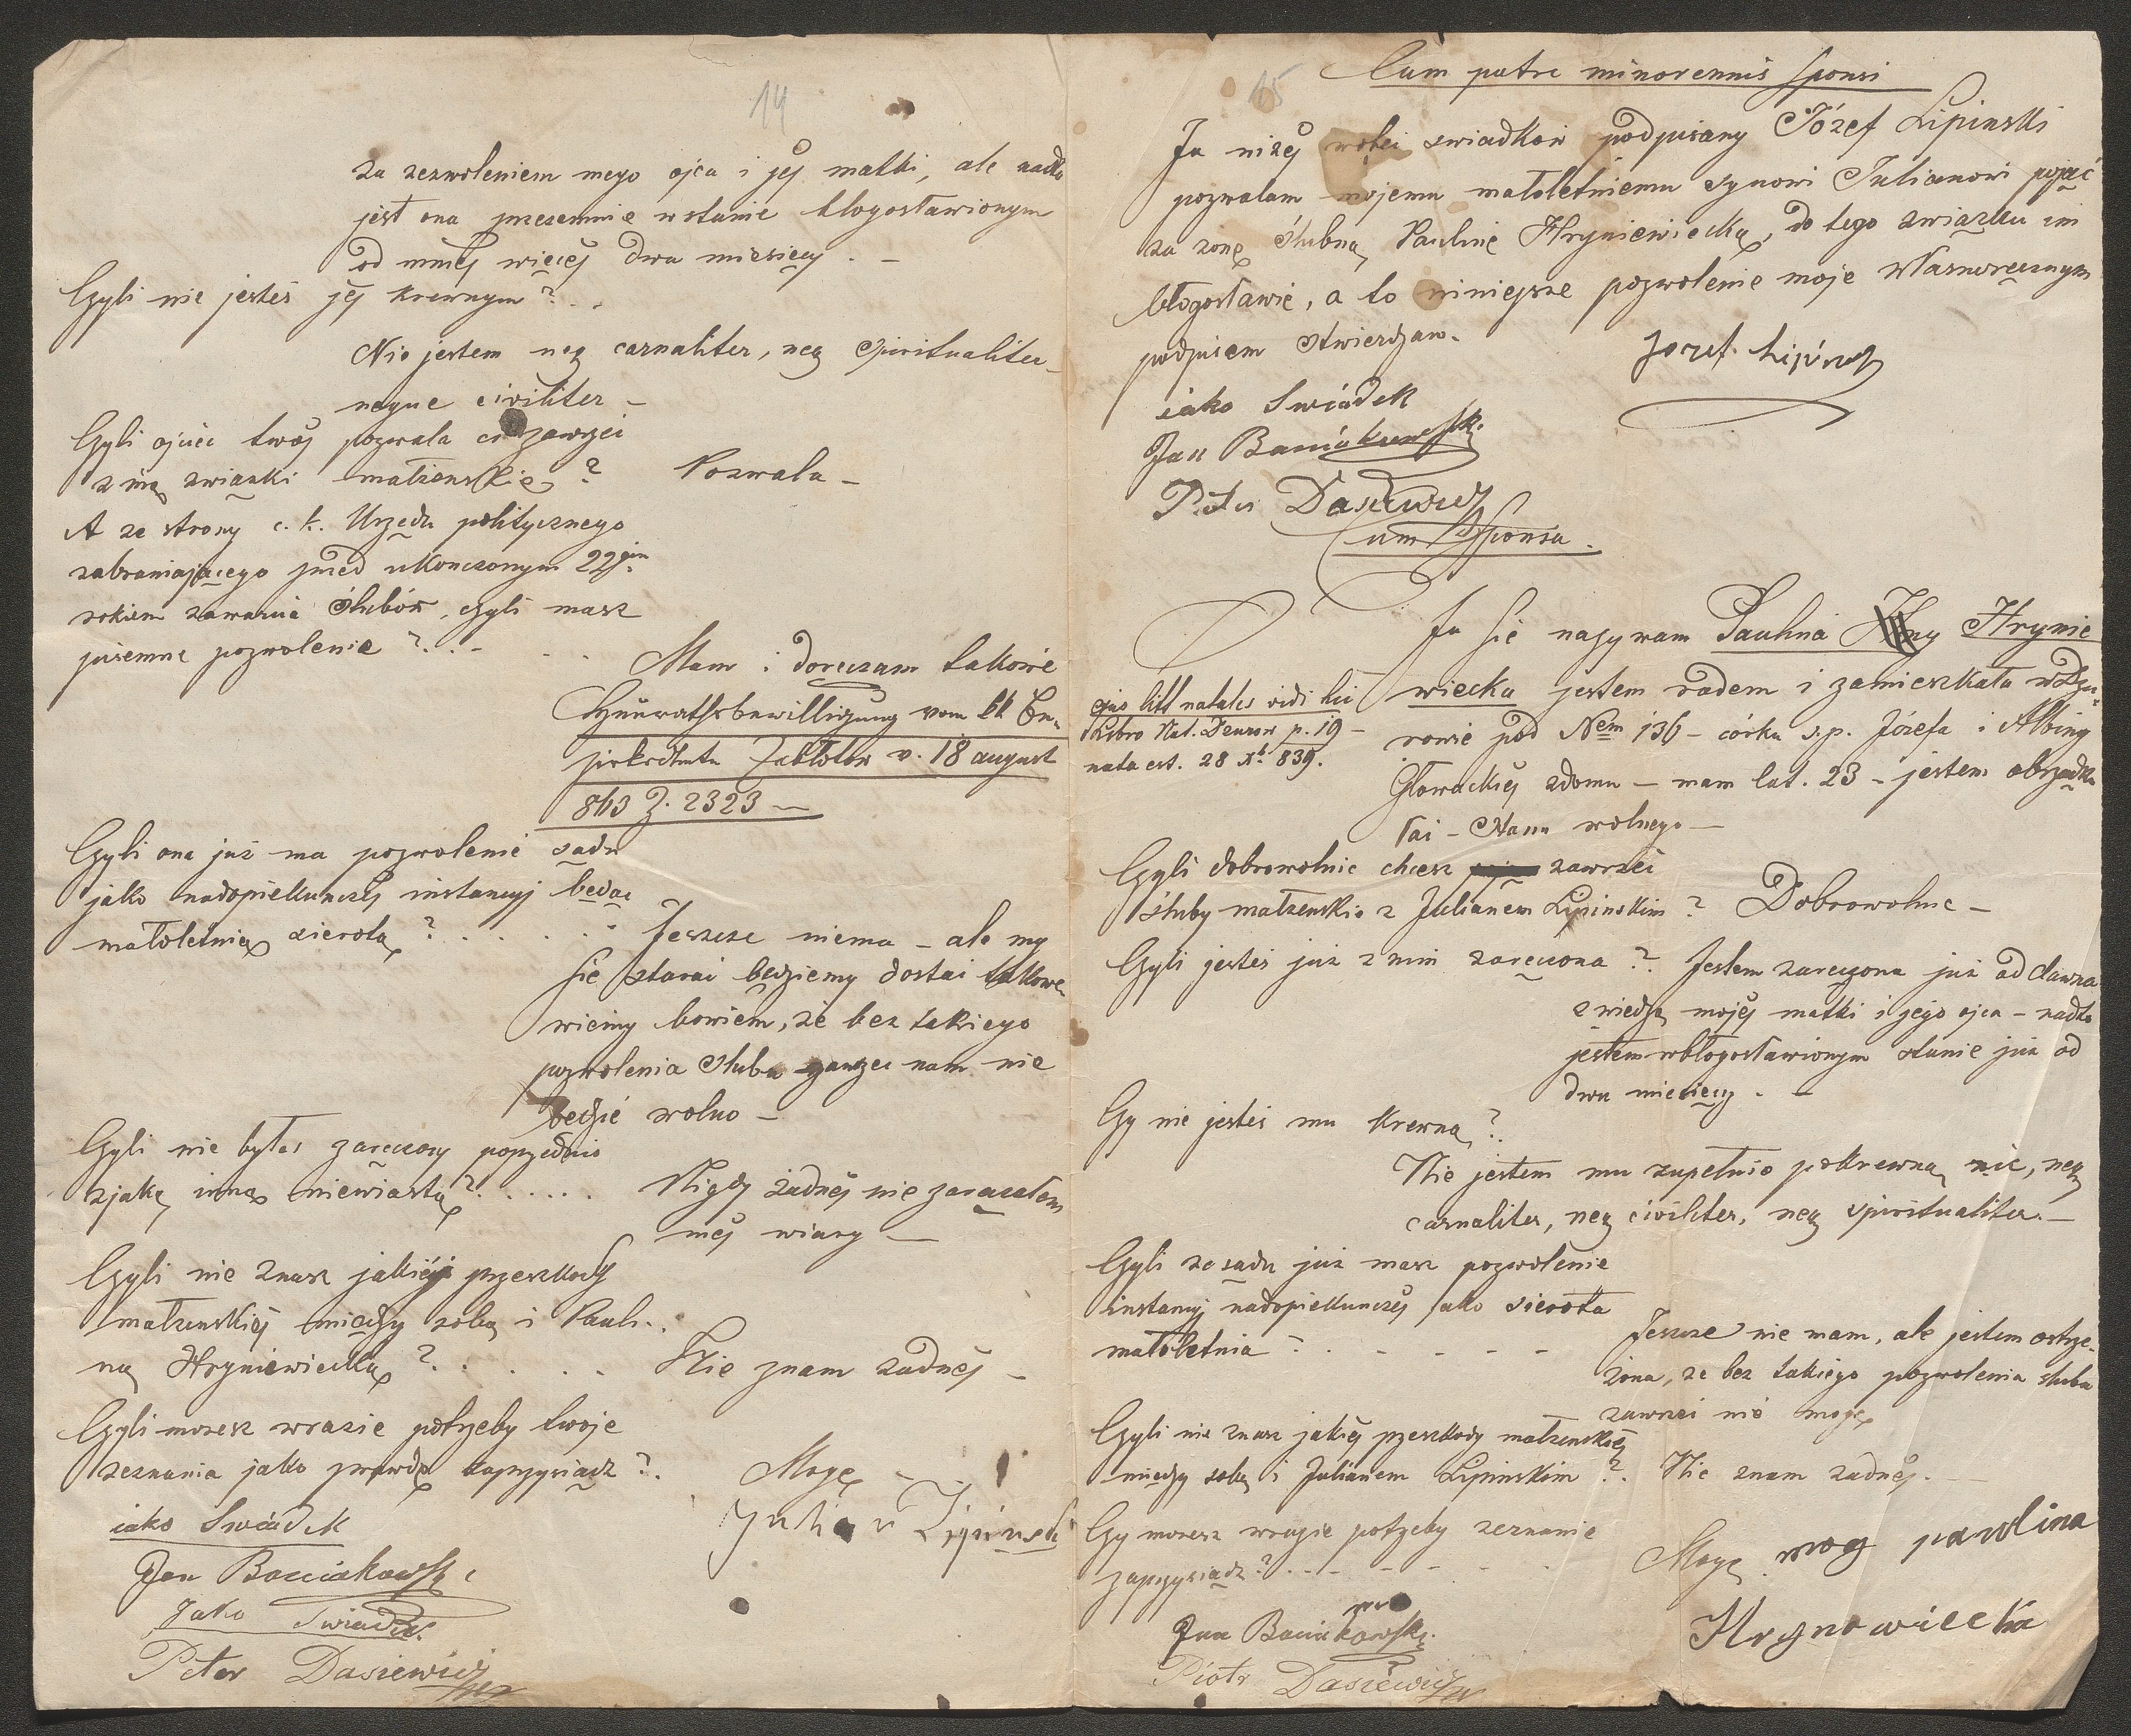 14
za zezwoleniem mego ojca i jéj matki, ale nadto
jest ona przezemnie w stanie błogosławionym
od mniéj więcéj dwu miesięcy. –
Czyli nie jesteś jéj krewnym? . .
Nie jestem neq carnaliter, neq spiritualiter
neque civiliter –
Czyli ojciec twój pozwala ci zawrzei
z nią związki małzenskie? Pozwala –
A ze strony c. k. Urzędu politycznego
zabraniającego przed ukonczonym 22gim
rokiem zawarcie slubów, czyli masz
pisemne pozwolenie? . . - - .
Mam i doręczam takowe
Heurathsbewilligung vom kk Be-
zirksamte Zabłotow v. 18 august
863 Z. 2323 –
Czyli ona już ma pozwolenie sądu
jako nadopiekunczéj instancyj będąc
małoletnią sierotą? . . . . . .
Jeszcze niema – ale my
się starai będziemy dostai takowe
wiemy bowiem, że bez takiego
pozwolenia slubu zawrzec nam nie
będzie wolno –
Czyli nie byłes zaręczony poprzednio
z jaką inną niewiastą? . . . . . Nigdy żadnéj nie zaręczałem
méj wiary –
Czyli nie znasz jakiéj przeszkody
małzenskiéj między sobą i Pauli-
ną Hryniewiecką? . . . . . Nie znam zadnéj –
Czyli mozesz wrazie potrzeby twoje
zeznania jako prawdę zaprzysiądz? .
Mogę –
Julian Lipinski
iako Swiadek
Jan Bociakowski
Jako Swiadek
Peter Dasiewicz
15
Cum patre minorennis sponsi
Ja nizéj wobei swiadków podpisany Józef Lipinski
pozwalam mojemu małoletniemu synowi Julianowi pojąć
za zonę slubną Paulinę Hryniewiecką, do tego związku im
błogosławię, a to niniejsze pozwolenie moje własnoręcznym
podpisem stwierdzam.
Jozef Lipinsky
iako Swiadek
Jan Bociakowski
Peter Dasiewicz
Cum Sponsa.
Ja się nazywam Paulina Hrynie
wiecka jestem rodem i zamieszkała w Dzu-
rowie pod Nem 136 – córka s.p. Józefa i Albiny
Głowackiéj z domu – mam lat. 23 – jestem obrządku
łać – stanu wolnego –
ejus litt natales vidi hic
Libro Nat. Dzurow p. 19 –
nata est. 28 Xb 839.
Czyli dobrowolnie chcesz zawrzei
sluby małzenskie z Julianem Lipinskim? Dobrowolnie –
Czyli jestes juz z nim zaręczona? . Jestem zaręczona już od dawna
z wiedzą mojéj matki i jego ojca – nadto
jestem w błogosławionym stanie już od
dwu miesięcy. –
Czy nie jesteś mu krewną? .
Nie jestem mu zupełnie pokrewną nic, neq
carnaliter, neq civiliter, neq spiritualiter. –
Czyli ze sądu juz masz pozwolenie
instancyj nadopiekunczéj jako sierota
małoletnia? . . - - - -
Jeszcze nie mam, ale jestem ostrze-
żona, ze bez takiego pozwolenia slubu
zawrzei nie mogę
Czyli nie znasz jakiéj przeszkody małzenskiéj
między sobą i Julianem Lipinskim? . Nie znam zadnéj. –
Czy mozesz wrazie potrzeby zeznanie
zaprzysiądz? . . - - - - -
Mogę . mog pawlina
Hrynowiecka
Jan Bociakowski.
Piotr Dasiewicz